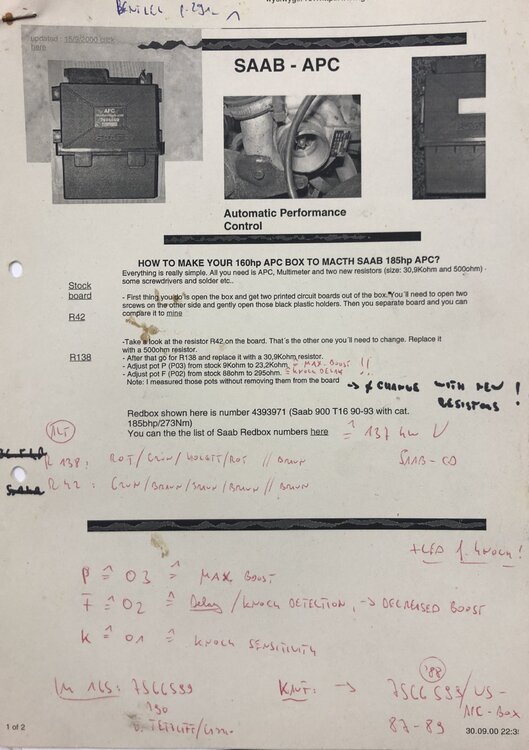 BENTLEY
updated : 15/9/2000 click
here
APC
SAAB - APC
Automatic Performance
Control
HOW TO MAKE YOUR 160hp APC BOX TO MACTH SAAB 185hp APC?
Everything is really simple. All you need is APC, Multimeter and two new resistors (size: 30,9Kohm and 500ohm) -
some screwdrivers and solder etc..
Stock
board
- First thing you go is open the box and get two printed circuit boards out of the box. You'll need to open two
srcews on the other side and gently open those black plastic holders. Then you separate board and you can
compare it to mine
R42
-Take a look at the resistor R42 on the board. That's the other one you'll need to change. Replace it
with a 500ohm resistor.
R138
- After that go for R138 and replace it with a 30,9Kohm resistor.
- Adjust pot P (P03) from stock 9Kohm to 23,2Kohm. = MAX. BOOST !!
- Adjust pot F (P02) from stock 88ohm to 295ohm. = KNOCK DELAY !
Note: I measured those pots without removing them from the board
→ CHANGE WITH NEW !
RESISTORS !
Redbox shown here is number 4393971 (Saab 900 T16 90-93 with cat.
185bhp/273Nm)
≙ 137 kW
You can the the list of Saab Redbox numbers here
ALT
SAAB-CD
R 138: ROT/GRÜN/VIOLETT/ROT // BRAUN
R 42: GRÜN/BRAUN/BRAUN/BRAUN // BRAUN
+ LED f. KNOCK!
P ≙ 03 ≙ MAX. BOOST
F ≙ 02 ≙ Delay / KNOCK DETECTION, → DECREASED BOOST
K ≙ 01 ≙ KNOCK SENSITIVITY
'88
IM 16S: 7566599
KNUT: → 7566599/US-
APC-BOX
87-89
1 of 2
30.09.00 22:3